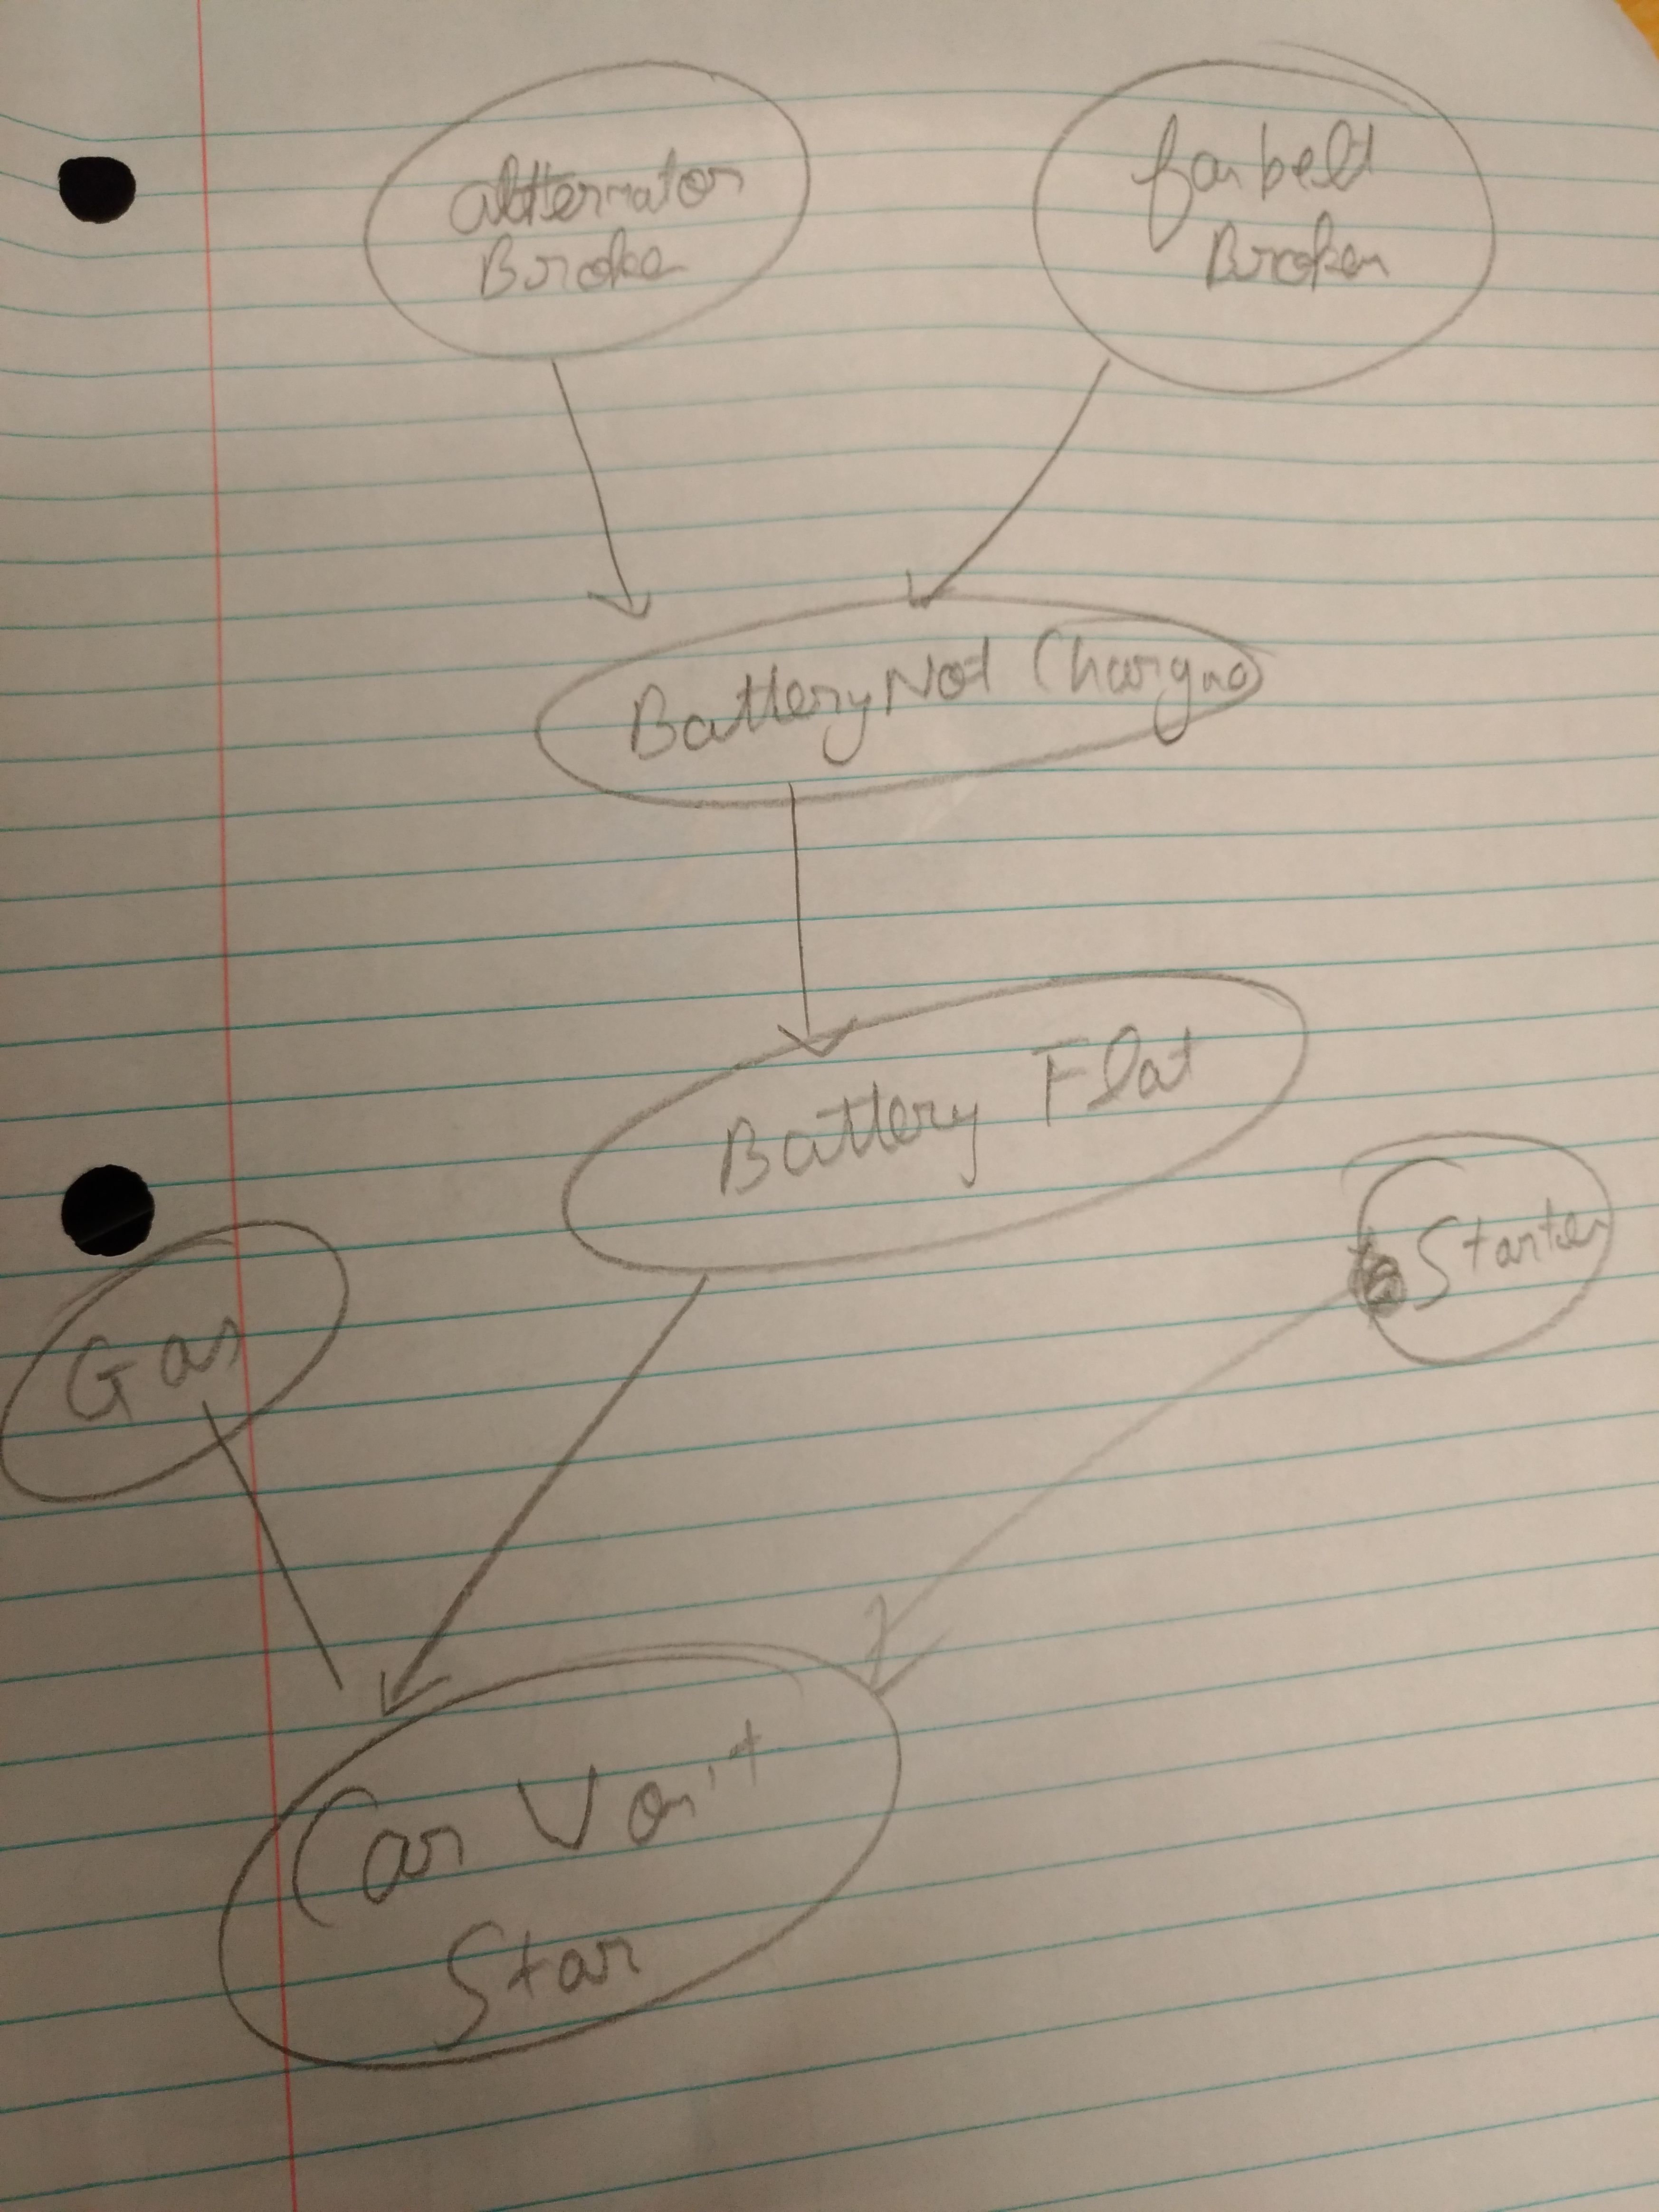 altternator
Broke
fan belt
Broken
Battery Not Chargng
Battery Flat
Starter
Gas
Car Von't
Star